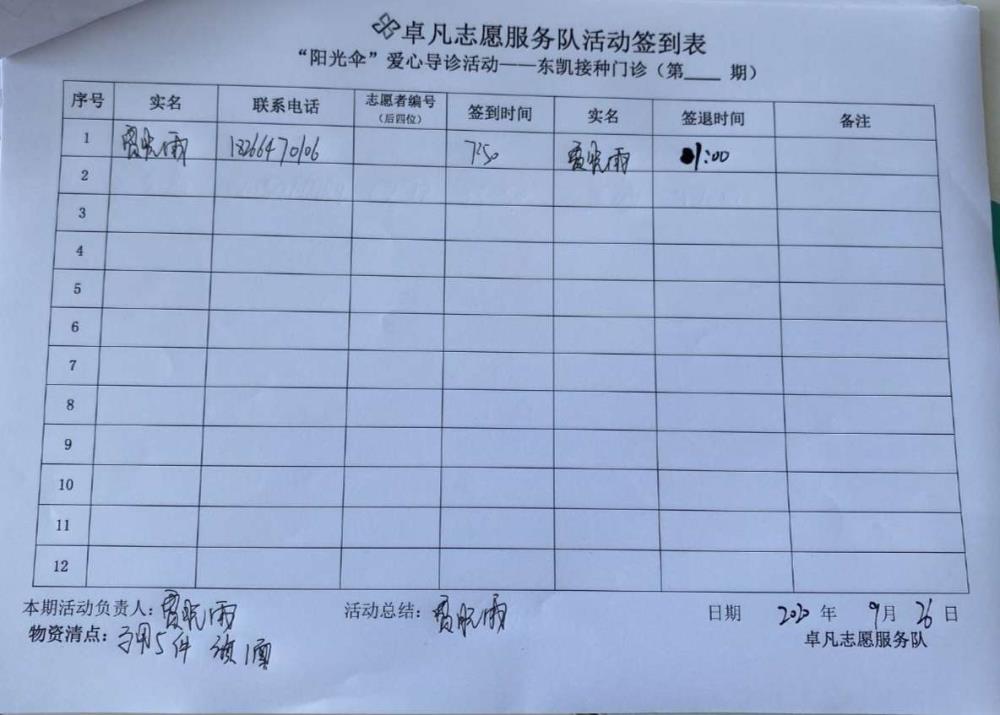 卓凡志愿服务队活动签到表
“阳光伞”爱心导诊活动——东凯接种门诊（第 期）
序号 实名 联系电话 志愿者编号（后四位） 签到时间 实名 签退时间 备注
1 雨 7:50 雨 01:00
2
3
4
5
6
7
8
9
10
11
12
本期活动负责人： 雨 活动总结： 雨 日期 2020 年 9月 26 日
物资清点： 5件 卓凡志愿服务队